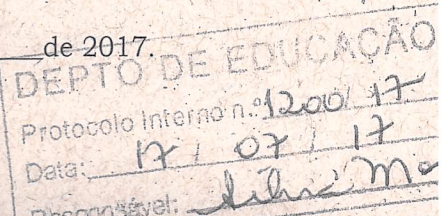 de 2017.
DEPTO DE EDUCAÇÃO
Protocolo Interno n.º 1200/17
Data: 17 / 07 / 17
Responsável: